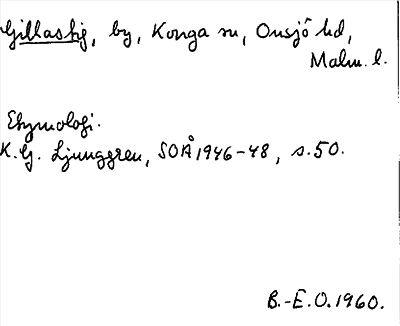 Gillastig, by, Konga sn, Onsjö hd,
Malm. l.
Etymologi.
K.G. Ljunggren, SOÅ 1946-48, s.50.
B.-E.O.1960.